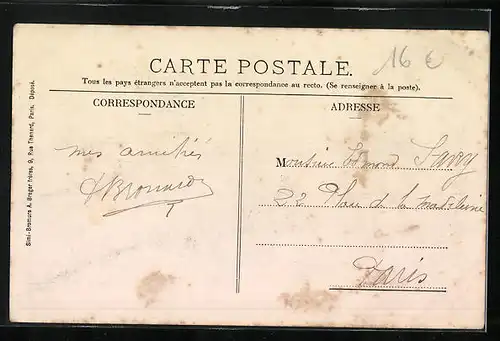 16 €
CARTE POSTALE.
Tous les pays étrangers n'acceptent pas la correspondance au recto. (Se renseigner à la poste).
CORRESPONDANCE
ADRESSE
mes amitiés
Monsieur Edmond Savy
22 Place de la Madeleine
Paris
Simi-Bromure A. Breger frères, 9, Rue Thénard, Paris. Déposé.